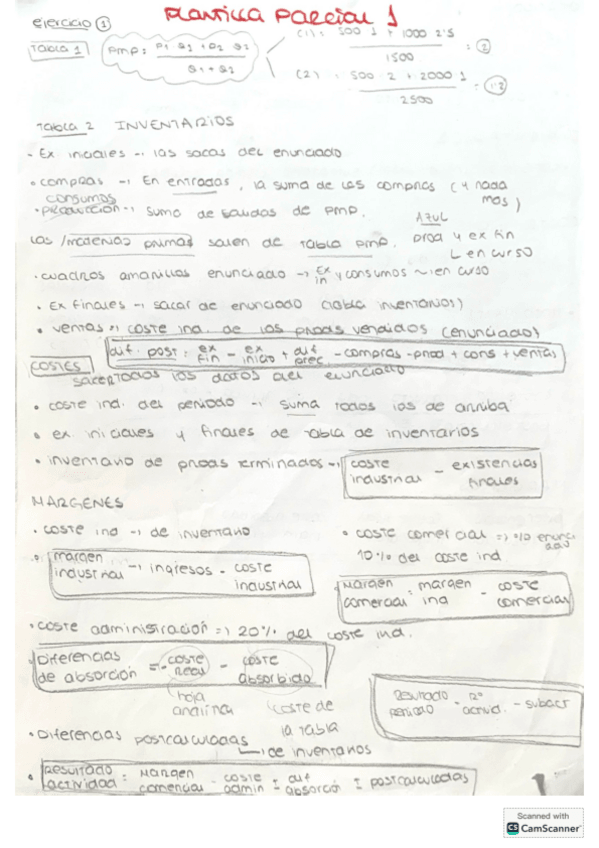 PLANTILLA PARCIAL 1
ejercicio ①
Tabla 1
PMP: P1 Q1 + P2 Q2 / Q1 + Q2
(1): 500 1 + 1000 2'5 / 1500 = ②
(2): 500 2 + 2000 1 / 2500 = 1'2
Tabla 2 INVENTARIOS
- Ex iniciales → las sacas del enunciado
• compras → En entradas, la suma de las compras (y nada mas)
consumos
• PRODUCCIÓN → suma de salidas de PMP.
AZUL
las materias primas salen de tabla PMP. prod y ex fin
en curso
• cuadros amarillos enunciado → Ex in y consumos en curso
• Ex finales → sacar de enunciado (tabla inventarios)
• ventas → coste ind. de los prods vendidos (enunciado)
dif. post = ex fin - ex inicio + dif prec. - compras - prod + cons + ventas
COSTES
sacar todos los datos del enunciado
• coste ind. del periodo → suma todos los de arriba
• ex. iniciales y finales de tabla de inventarios
• inventario de prods terminados → coste industrial - existencias finales
MARGENES
• coste ind → de inventario
• coste comercial => %
10% del coste ind
• margen industrial → ingresos - coste industrial
Margen comercial = margen ind - coste comercial
• coste administración => 20% del coste ind.
• Diferencias de absorción = coste real - coste absorbido
hoja analítica
coste de la tabla
Resultado periodo = Rº activid. - subact
• Diferencias postcalculadas
→ de inventarios
• Resultado actividad = Margen comercial - coste admin ± dif absorción ± postcalculadas
1
Scanned with
CS CamScanner